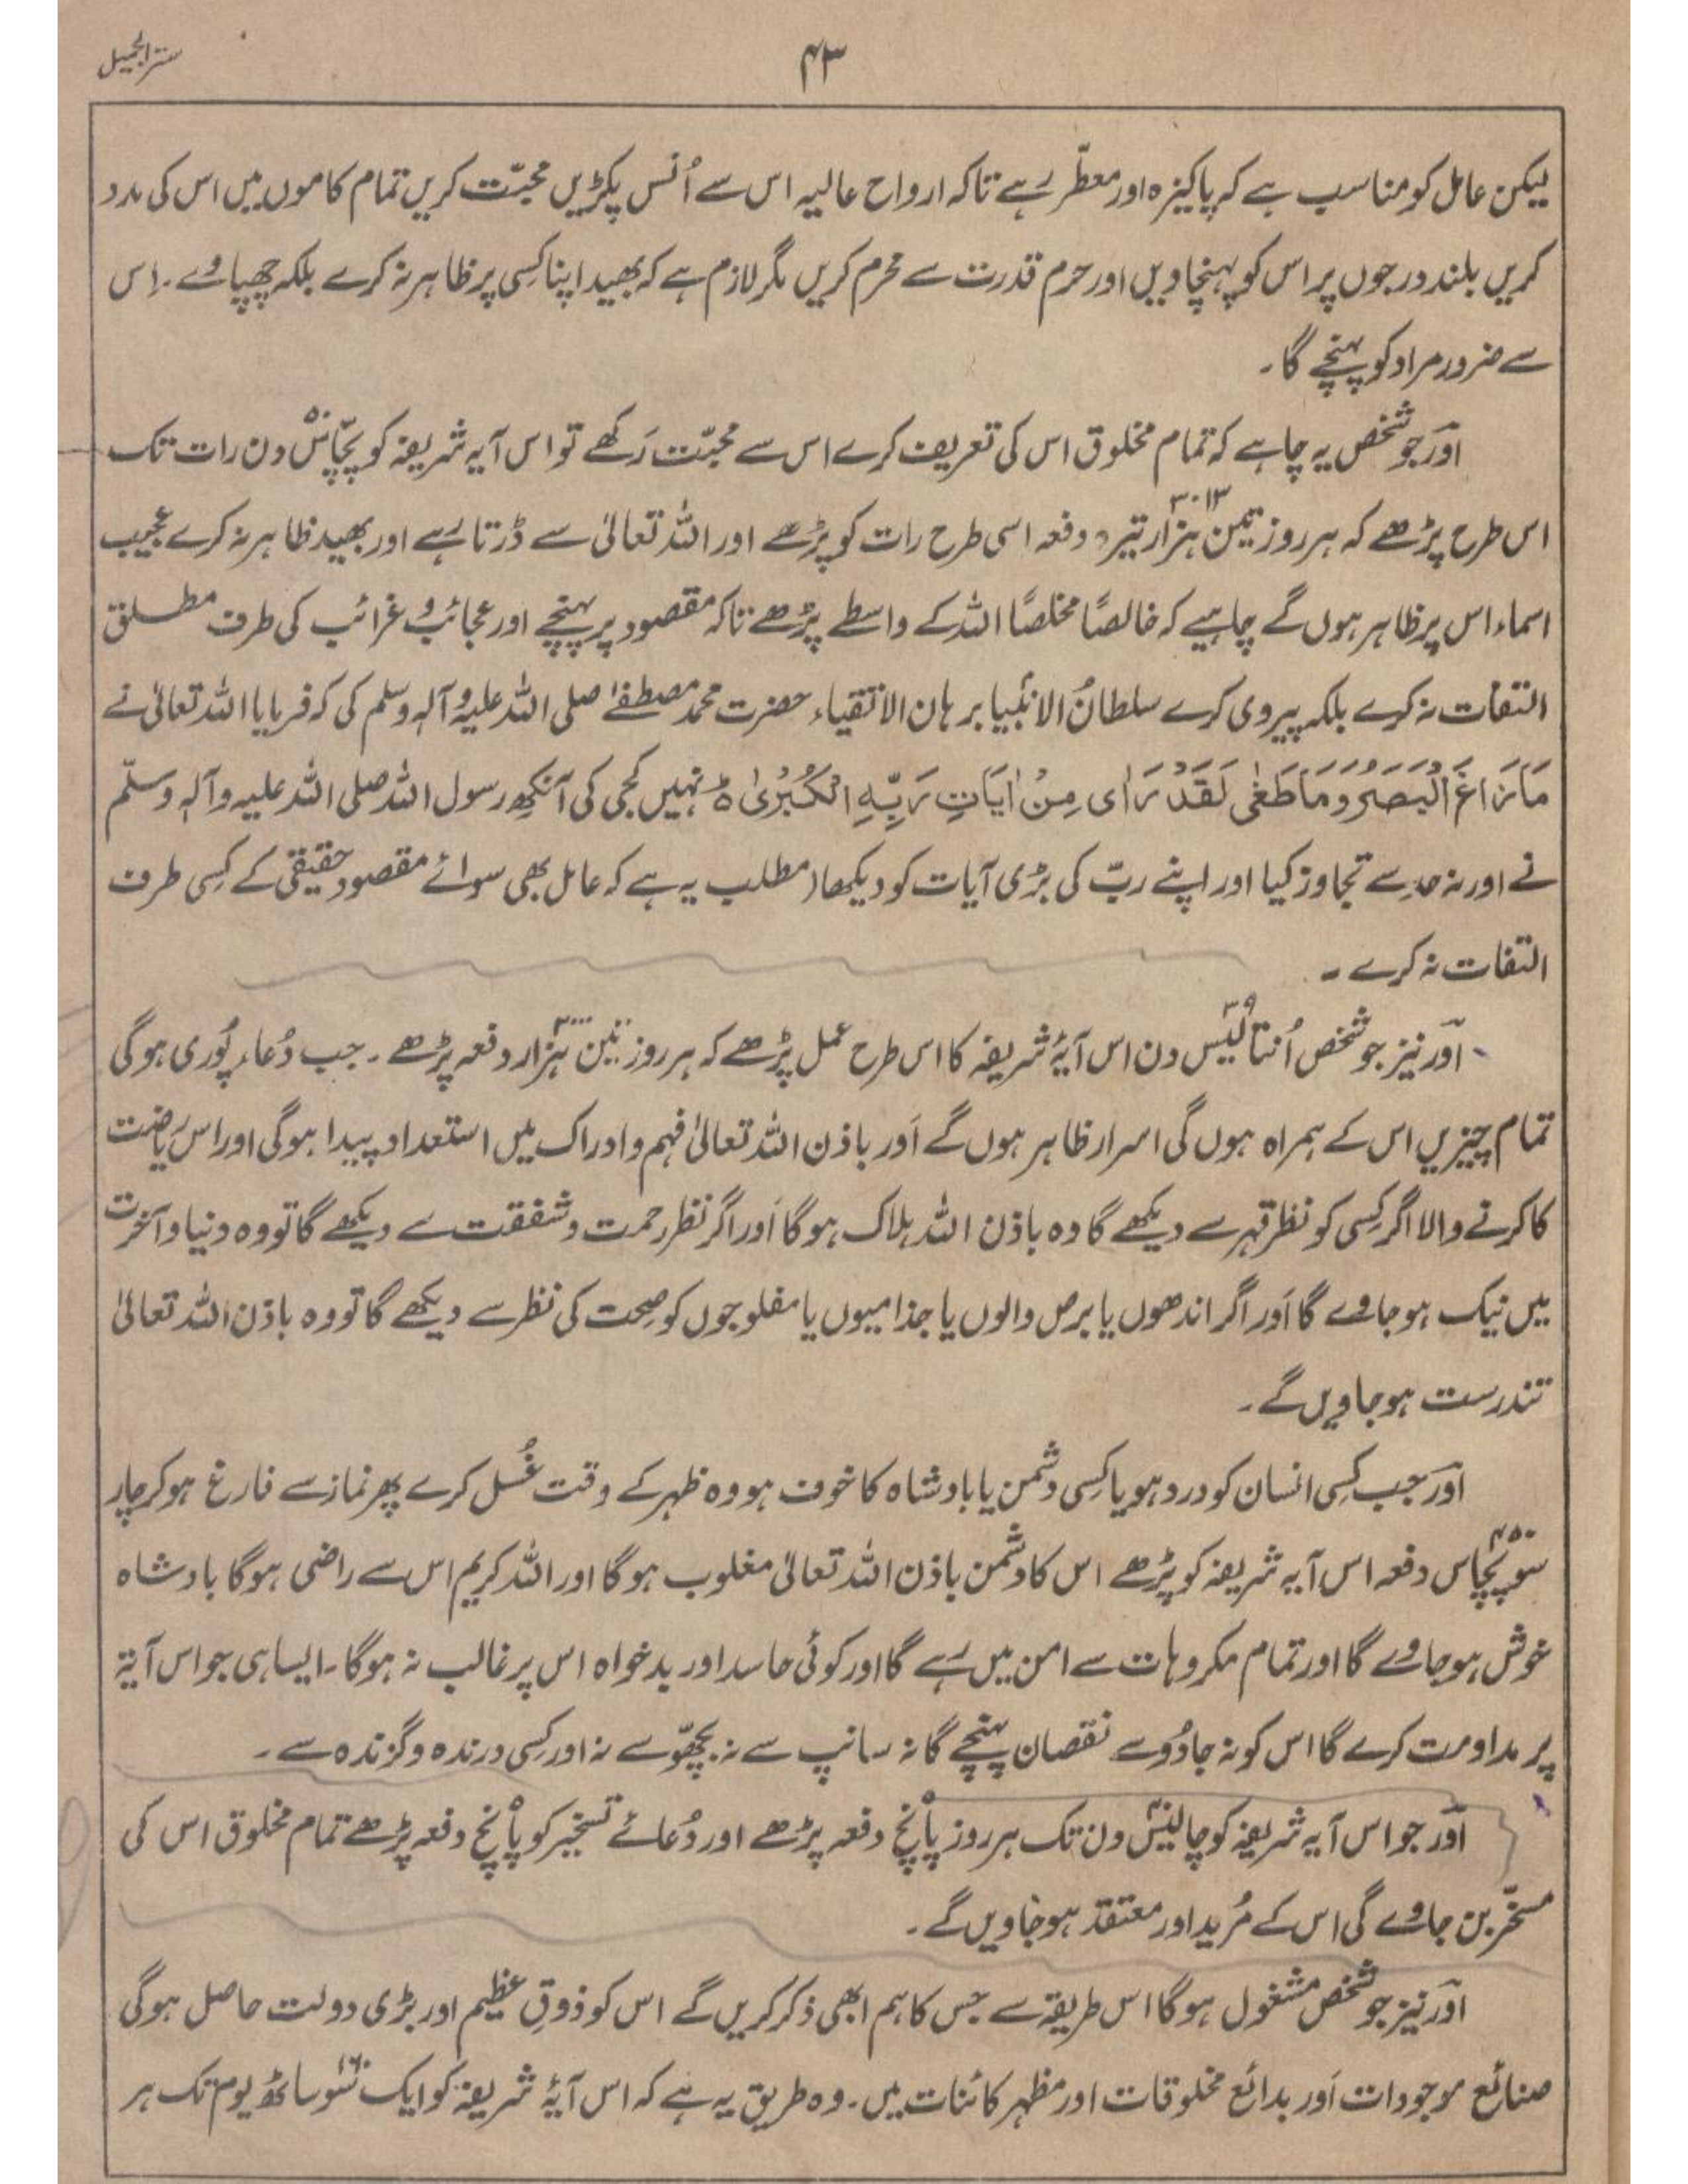 ۴۳
ستر الجمیل
لیکن عامل کو مناسب ہے کہ پاکیزہ اور معطّر رہے تاکہ ارواح عالیہ اس سے اُنس پکڑیں محبّت کریں تمام کاموں میں اس کی مدد
کریں بلند درجوں پر اس کو پہنچاویں اور حرم قدرت سے محرم کریں مگر لازم ہے کہ بھید اپنا کسی پر ظاہر نہ کرے بلکہ چھپاوے۔ اِس
سے ضرور مراد کو پہنچے گا۔
اور جو شخص یہ چاہے کہ تمام مخلوق اس کی تعریف کرے اس سے محبّت رَکھے تو اس آیہ شریفہ کو پچّاس۵۰ دن رات تک
اس طرح پڑھے کہ ہر روز تین ہزار تیرہ ۳۰۱۳ دفعہ اسی طرح رات کو پڑھے اور اللہ تعالیٰ سے ڈرتا رہے اور بھید ظاہر نہ کرے عجیب
اسماء اس پر ظاہر ہوں گے چاہیے کہ خالصًا مخلصًا اللہ کے واسطے پڑھے تاکہ مقصود پر پہنچے اور عجائب و غرائب کی طرف مطلق
التفات نہ کرے بلکہ پیروی کرے سلطانُ الانبیا برہان الاتقیاء حضرت محمد مصطفےٰ صلی اللہ علیہ وآلہٖ وسلم کی کہ فرمایا اللہ تعالیٰ نے
مَا زَاغَ الْبَصَرُ وَمَا طَغٰی لَقَدْ رَاٰی مِنْ اٰیَاتِ رَبِّہِ الْکُبْرٰی ہ نہیں کجی کی آنکھ رسول اللہ صلی اللہ علیہ وآلہٖ وسلّم
نے اور نہ حد سے تجاوز کیا اور اپنے ربّ کی بڑی آیات کو دیکھا (مطلب یہ ہے کہ عامل بھی سوائے مقصود حقیقی کے کسی طرف
التفات نہ کرے۔
اور نیز جو شخص اُنتالیس۳۹ دن اس آیۂ شریفہ کا اس طرح عمل پڑھے کہ ہر روز تین ہزار۳۰۰۰ دفعہ پڑھے۔ جب دُعاء پُوری ہوگی
تمام چیزیں اس کے ہمراہ ہوں گی اسرار ظاہر ہوں گے اَور باذن اللہ تعالیٰ فہم و ادراک میں استعداد پیدا ہوگی اور اس ریاضت
کا کرنے والا اگر کسی کو نظر قہر سے دیکھے گا وہ باذن اللہ ہلاک ہوگا اَور اگر نظر رحمت و شفقت سے دیکھے گا تو وہ دنیا و آخرت
میں نیک ہو جاوے گا اَور اگر اندھوں یا برص والوں یا جذامیوں یا مفلوجوں کو صحت کی نظر سے دیکھے گا تو وہ باذن اللہ تعالیٰ
تندرست ہو جاویں گے۔
اور جب کسی انسان کو درد ہو یا کسی دشمن یا بادشاہ کا خوف ہو وہ ظہر کے وقت غُسل کرے پھر نماز سے فارغ ہو کر چار
سَو پچاس ۴۵۰ دفعہ اس آیہ شریفہ کو پڑھے اس کا دشمن باذن اللہ تعالیٰ مغلوب ہوگا اور اللہ کریم اس سے راضی ہوگا بادشاہ
خوش ہو جاوے گا اور تمام مکروہات سے امن میں رہے گا اور کوئی حاسد اور بدخواہ اس پر غالب نہ ہوگا۔ ایسا ہی جو اس آیۃ
پر مداومت کرے گا اس کو نہ جادُو سے نقصان پہنچے گا نہ سانپ سے نہ بچھّو سے نہ اور کسی درندہ و گزندہ سے۔
اور جو اس آیہ شریفہ کو چالیس۴۰ دن تک ہر روز پانچ۵ دفعہ پڑھے اور دُعائے تسخیر کو پانچ۵ دفعہ پڑھے تمام مخلوق اس کی
مسخّر بن جاوے گی اس کے مُرید اور معتقد ہو جاویں گے۔
اور نیز جو شخص مشغول ہوگا اس طریقہ سے جس کا ہم ابھی ذکر کریں گے اس کو ذوقِ عظیم اور بڑی دولت حاصل ہوگی
صنائع موجودات اَور بدائع مخلوقات اور مظہر کائنات میں۔ وہ طریق یہ ہے کہ اس آیۂ شریفہ کو ایک سَو ساٹھ۱۶۰ یوم تک ہر